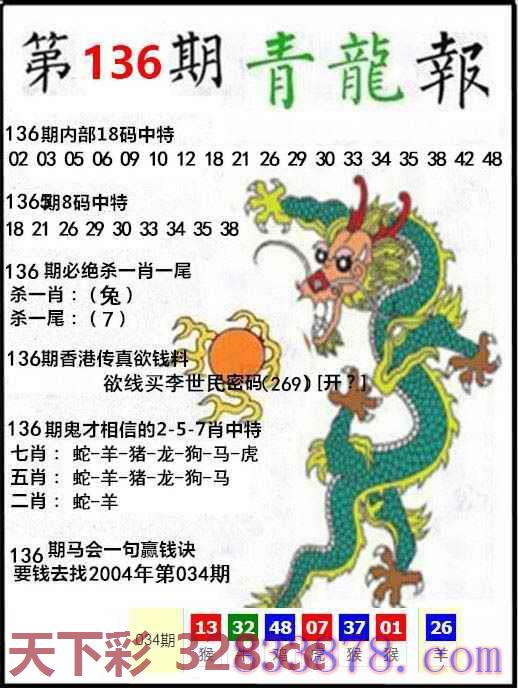 第136期青龍報
136期内部18码中特
02 03 05 06 09 10 12 18 21 26 29 30 33 34 35 38 42 48
136期8码中特
18 21 26 29 30 33 34 35 38
136期必绝杀一肖一尾
杀一肖：（兔）
杀一尾：（7）
136期香港传真欲钱料
欲线买李世民密码(269)[开？]
136期鬼才相信的2-5-7肖中特
七肖：蛇-羊-猪-龙-狗-马-虎
五肖：蛇-羊-猪-龙-狗-马
二肖：蛇-羊
136期马会一句赢钱诀
要钱去找2004年第034期
034期 13 32 48 07 37 01 26
猴 牛 鸡 虎 猴 猴 羊
天下彩 3283878.com